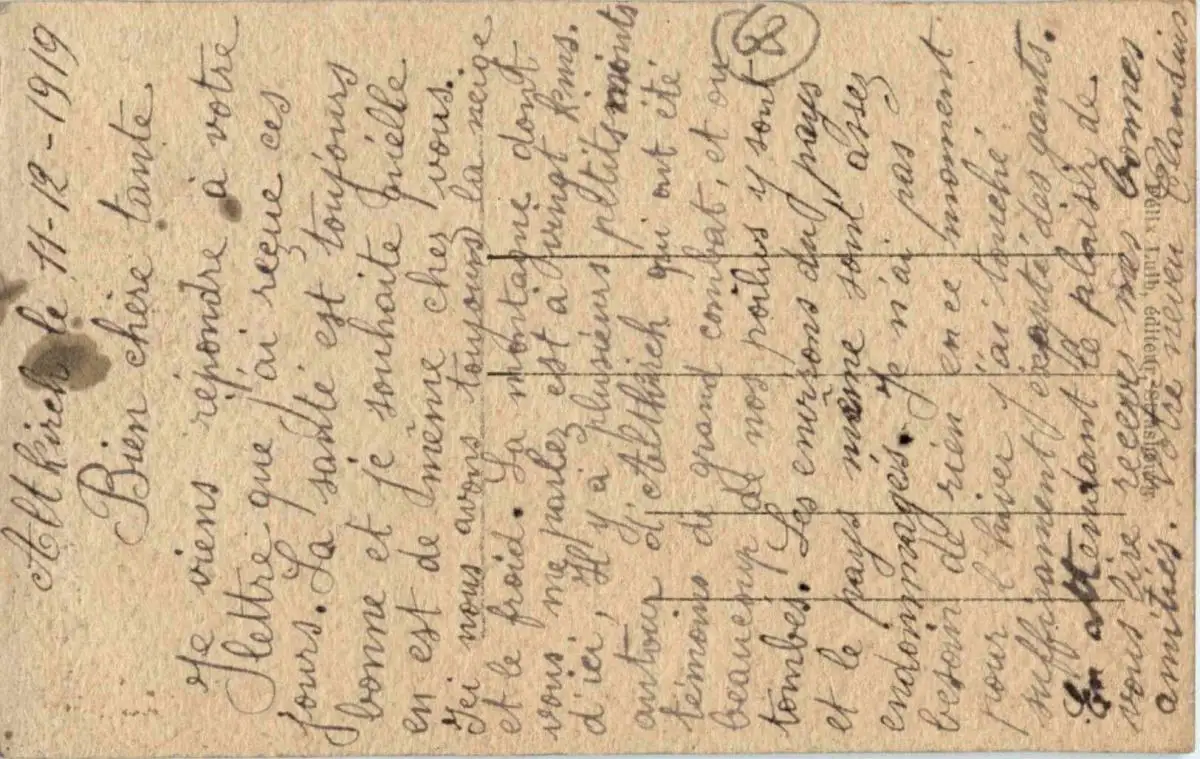 Altkirch le 11-12-1919
Bien chère tante
Je viens répondre à votre
lettre que j'ai reçue ces
jours. La santé est toujours
bonne et je souhaite qu'elle
en est de même chez vous.
Ici nous avons toujours la neige
et le froid. La montagne dont
vous me parlez est à vingt kms.
d'ici, Il y à plusieurs petits monts
autour d'Altkirch qui ont été
témoins de grand combat, et ou
beaucoup de nos poilus y sont
tombés. Les environs du pays
et le pays même sont assez
endommagés. Je n'ai pas
besoin de rien en ce moment
pour l'hiver j'ai touché
suffisamment excepté des gants.
En attendant le plaisir de
vous lire recevez mes bonnes
amitiés. Votre neveu Blandin
éditeur